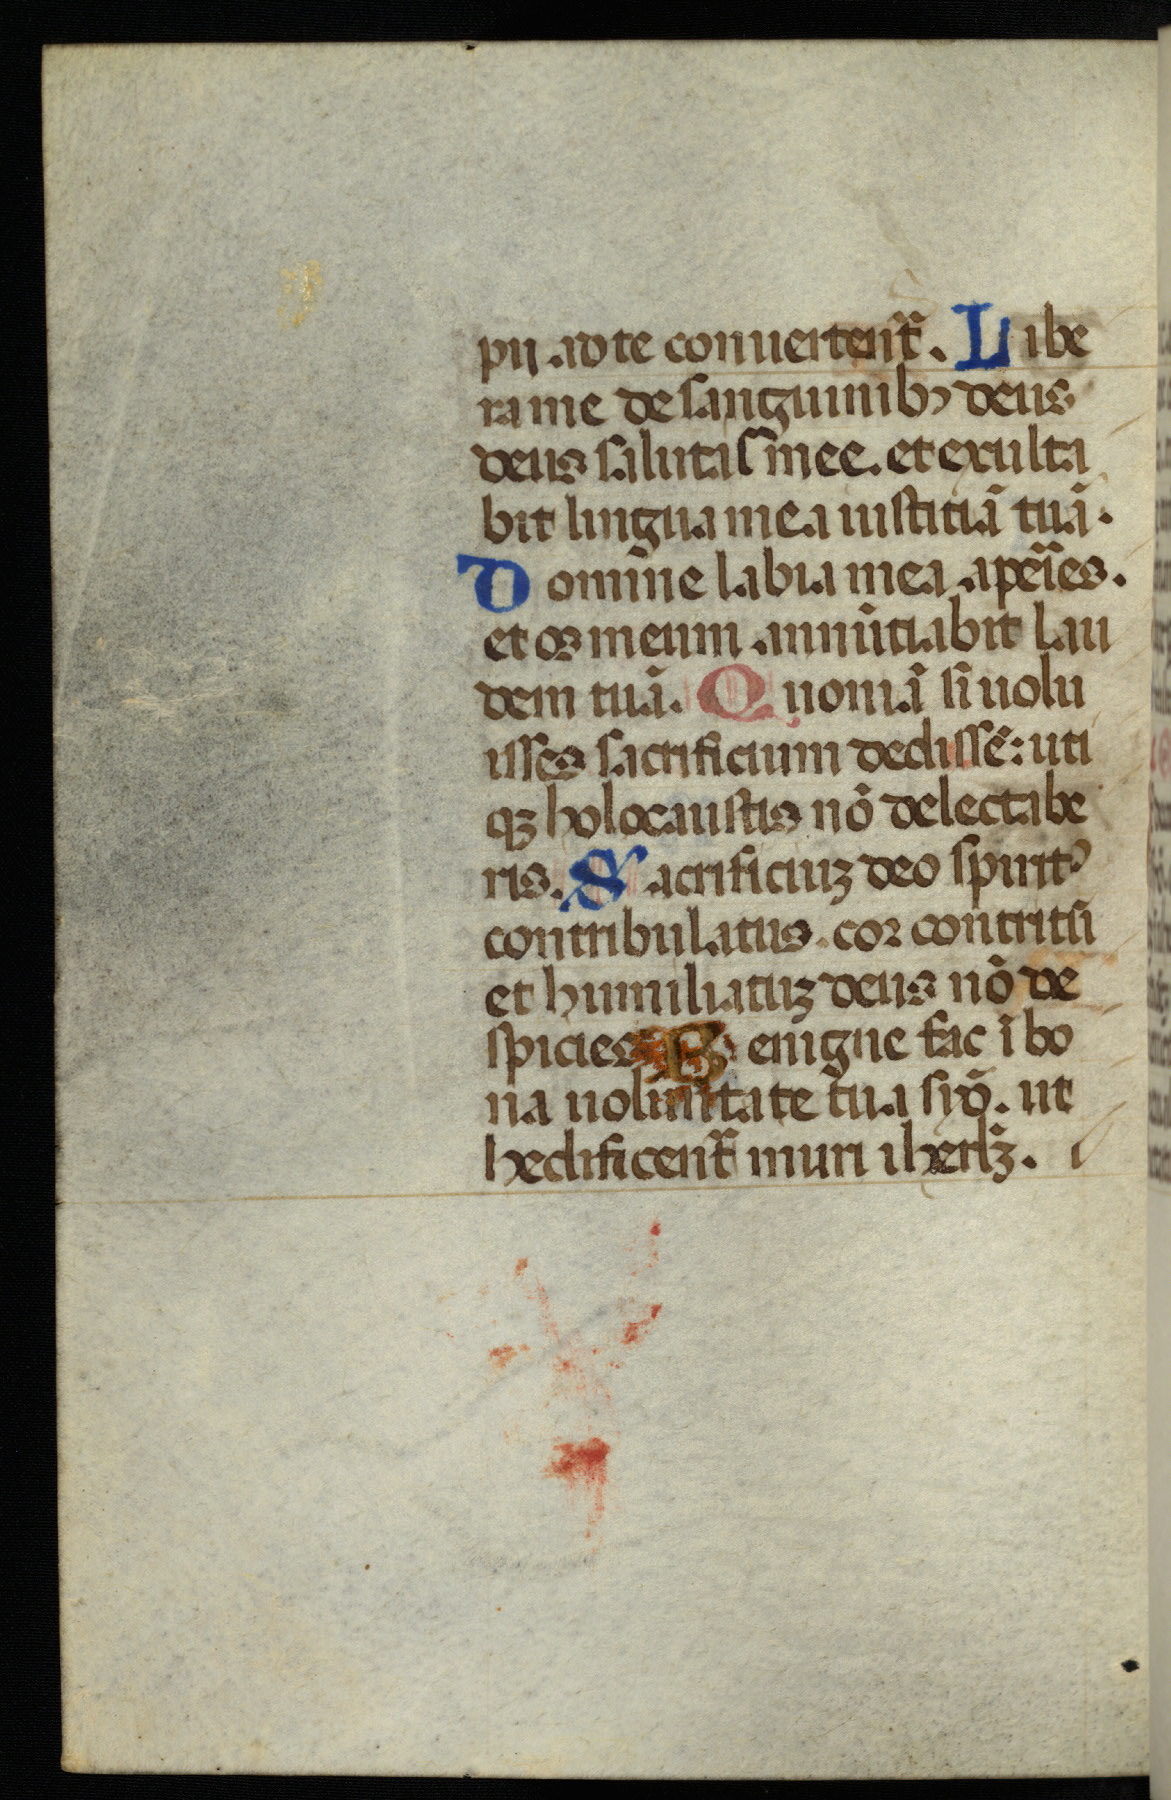 pij ad te conuertent᷑. Libe
ra me de sanguinibꝫ deus
deus salutis mee. et exulta
bit lingua mea iusticiā tuā.
Domine labia mea aperies.
et os meum annūtiabit lau
dem tuā. Quoniā si uolu
isses sacrificium dedissē: uti
qꝫ holocaustis nō delectabe
ris. Sacrificiuꝫ deo spiritꝰ
contribulatus. cor contritū
et humiliatuꝫ deus nō de
spicies Benigne fac ī bo
na uoluntate tua syō. ut
hedificent᷑ muri iherlꝫ.